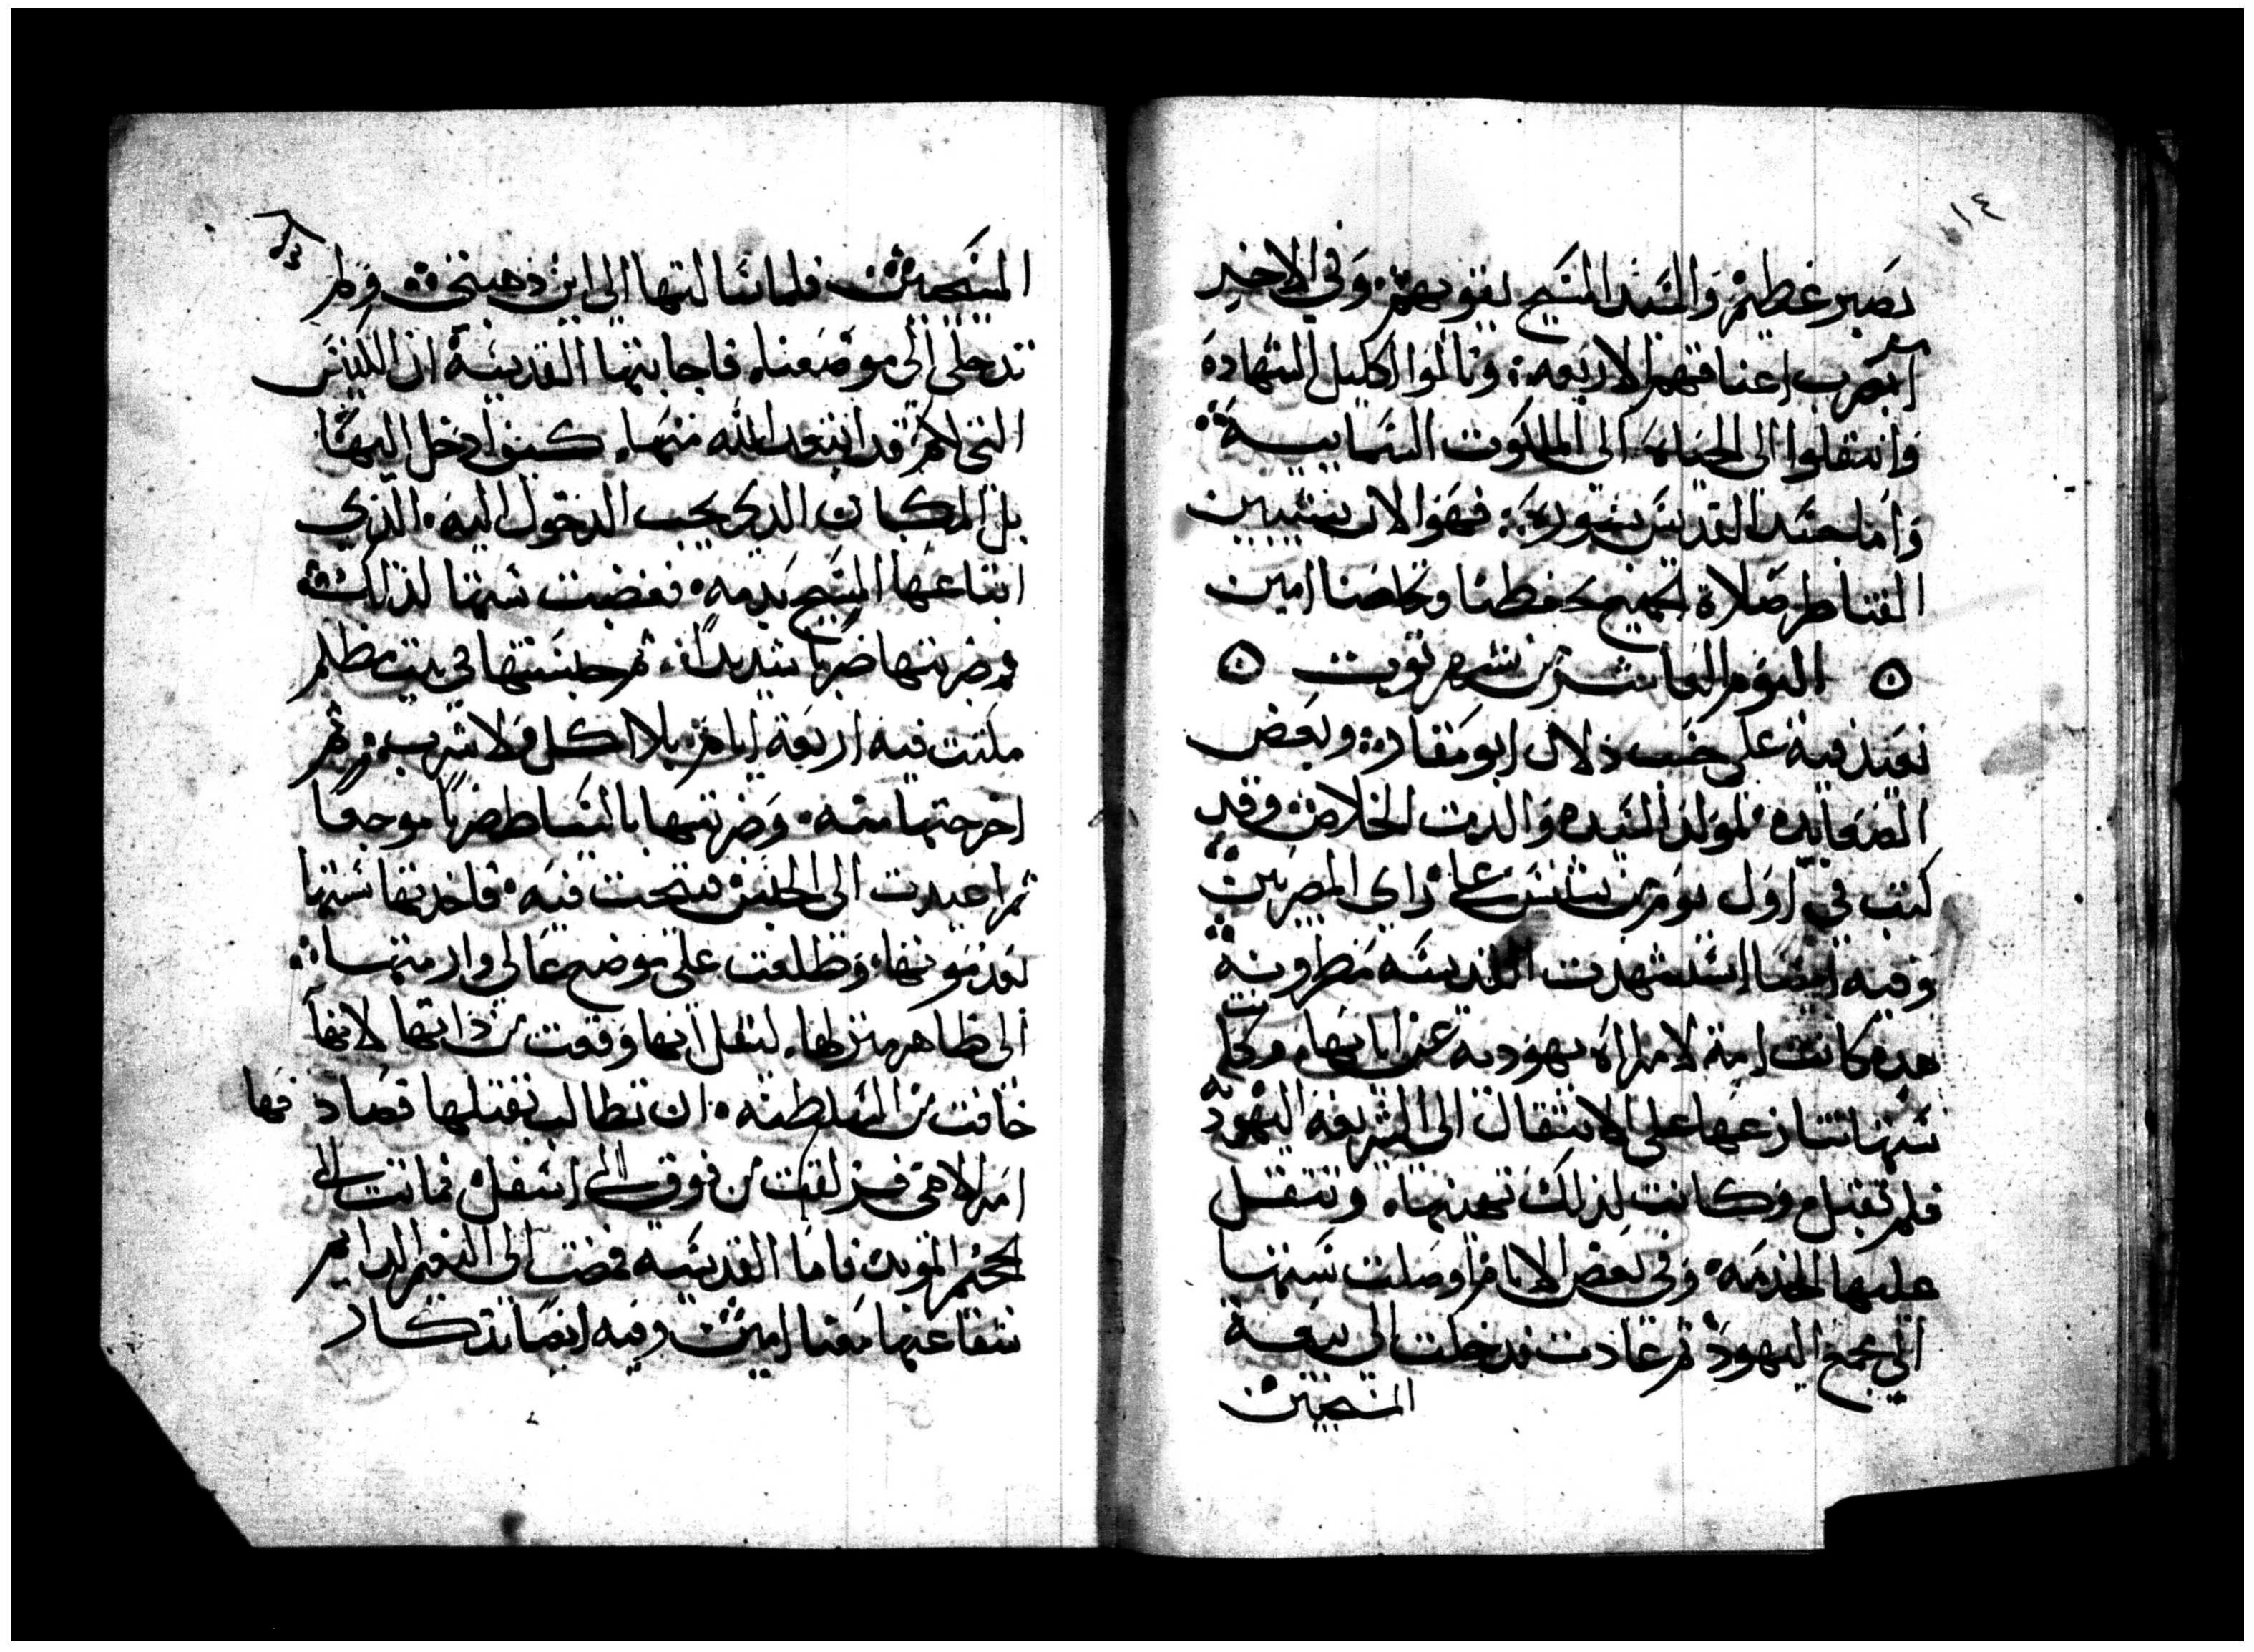 ١٤
بصبر عظيم والسيد المسيح يقويهم. وفي الاخير
امر بضرب اعناقهم الاربعه: ونالوا اكليل الشهادة
وانتقلوا الى الحياه الى الملكوت السماييه
واما جسد القديس بسوره: فهو الان بنشيين
القناطر صلاة الجميع تحفظنا وتخلصنا امين
اليوم العاشر من شهر توت
نعيد فيه على حسب دلال ابو مقار: وبعض
الصعايده لمولد السيده والدت الخلاص وقد
كتب في اول يوم من بشنس على راي المصريين
وفيه ايضا استشهدت القديسه مطرونه
هده كانت امة لامراه يهوديه عن ابايها. وكانت
ستها تنازعها على الانتقال الى الشريعه اليهوديه
فلم تقبل وكانت لذلك تهينها. وتتقل
عليها الخدمه. وفي بعض الايام اوصلت ستها
الي مجمع اليهود ثم عادت فدخلت الى بيعة
المسيحيين
المسيحيين فلما سالتها الى اين ذهبتي ولم
تدخلي الى موضعنا. فاجابتها القديسة ان الكنيس
التي لكم قد ابتعد الله منها. كيف ادخل اليها
بل المكان الدي يجب الدخول اليه. الذي
ابتاعها المسيح بدمه. فغضبت ستها لذلك
وضربتها ضربا شديدا. ثم حبستها في بيت مظلم
مكتت فيه اربعة ايام بلا اكل ولا شرب. ثم
اخرجتها منه. وضربتها بالسياط ضربا موجعا
ثم اعيدت الى الحبس فتنيحت فيه. فاخدتها ستها
بعد موتها. وطلعت على موضع عالي وارمتها
الى ظاهر منزلها. ليقل انها وقعت من ذاتها لانها
خافت من السلطنه. ان تطالب بقتلها فصادفها
امر الاهي فزلقت من فوق الى اسفل فماتت الى
الجحيم المؤبد فاما القديسه فمضت الى النعيم الدايم
شفاعتها معنا امين وفيه ايضا تدكار